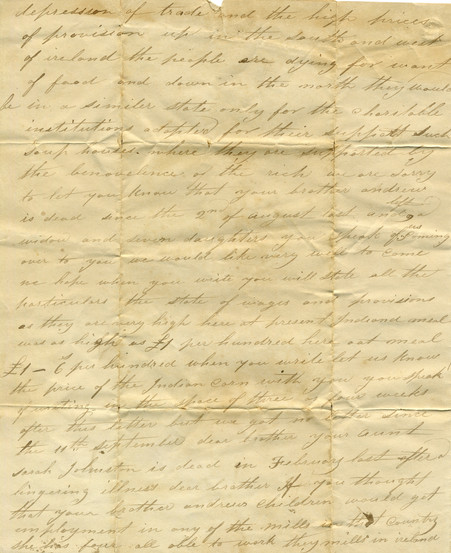 depression of trade and the high prices
of provision up in the south and west
of ireland the people are dying for want
of food and down in the north they would
be in a similer state only for the charatable
institutions adopted for their support such
soup houses where they are supported by
the benevolence of the rich we are sorry
to let you know that your brother andrew
is dead since the 2nd of august last and left a
widow and seven daughters you speak of us coming
over to you we would like very well to come
we hope when you write you will state all the
particulars the state of wages and provisions
as they are very high here at present Indiand meal
was as high as £1 per hundred here oat meal
£1-6 per hundred when you write let us know
the price of the Indian corn with you you speak
of writing in the space of three or four weeks
after this letter but we got no letter since
the 11th September dear brother your aunt
Sarah Johnston is dead in February last after a
lingering illness dear brother if you thought
that your brother andrews children would get
imployment in any of the mills in that Country
she has four all able to work they mills in ireland